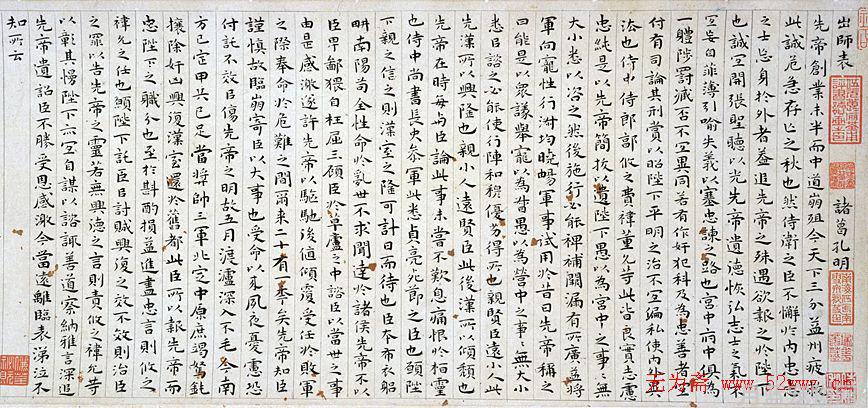 出師表 諸葛孔明
先帝創業未半而中道崩殂今天下三分益州疲敝
此誠危急存亡之秋也然侍衛之臣不懈於內忠志
之士忘身於外者蓋追先帝之殊遇欲報之於陛下
也誠宜開張聖聽以光先帝遺德恢弘志士之氣不
宜妄自菲薄引喻失義以塞忠諫之路也宮中府中俱為
一體陟罰臧否不宜異同若有作奸犯科及為忠善者宜
付有司論其刑賞以昭陛下平明之治不宜偏私使內外異
法也侍中侍郎郭攸之費禕董允等此皆良實志慮
忠純是以先帝簡拔以遺陛下愚以為宮中之事事無
大小悉以咨之然後施行必能裨補闕漏有所廣益將
軍向寵性行淑均曉暢軍事試用於昔日先帝稱之
曰能是以眾議舉寵以為督愚以為營中之事事無大小
悉以諮之必能使行陣和穆優劣得所也親賢臣遠小人此
先漢所以興隆也親小人遠賢臣此後漢所以傾頹也
先帝在時每與臣論此事未嘗不歎息痛恨於桓靈
也侍中尚書長史參軍此悉貞亮死節之臣也願陛
下親之信之則漢室之隆可計日而待也臣本布衣躬
耕南陽苟全性命於亂世不求聞達於諸侯先帝不以
臣卑鄙猥自枉屈三顧臣於草廬之中諮臣以當世之事
由是感激遂許先帝以驅馳後值傾覆受任於敗軍
之際奉命於危難之間爾來二十有一年矣先帝知臣
謹慎故臨崩寄臣以大事也受命以來夙夜憂慮恐
付託不效臣傷先帝之明故五月渡瀘深入不毛今南
方已定甲兵已足當獎帥三軍北定中原庶竭駑鈍
攘除奸凶興復漢室還於舊都此臣所以報先帝而
忠陛下之職分也至於斟酌損益進盡忠言則攸之
禕允之任也願陛下託臣以討賊興復之效不效則治臣
之罪以告先帝之靈若無興德之言則責攸之禕允等
以彰其慢陛下亦宜自謀以諮諏善道察納雅言深追
先帝遺詔臣不勝受恩感激今當遠離臨表涕泣不
知所云
无为斋